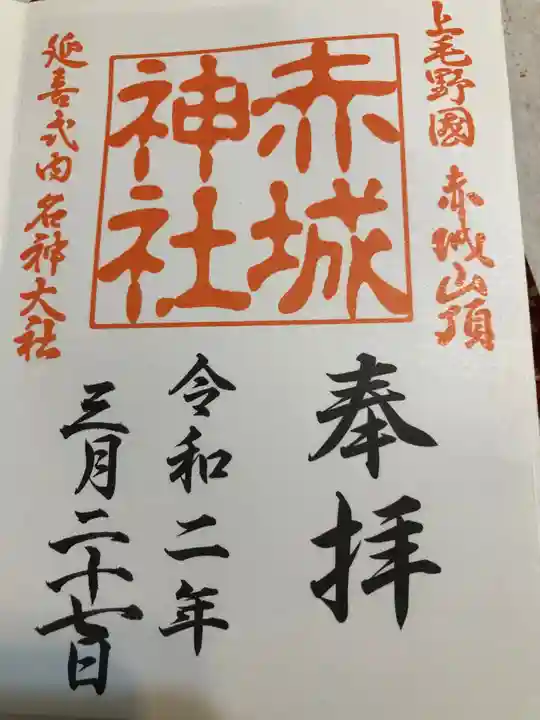 上毛野國 赤城山頂
赤城
神社
延喜式内名神大社
奉拝
令和二年
三月二十七日